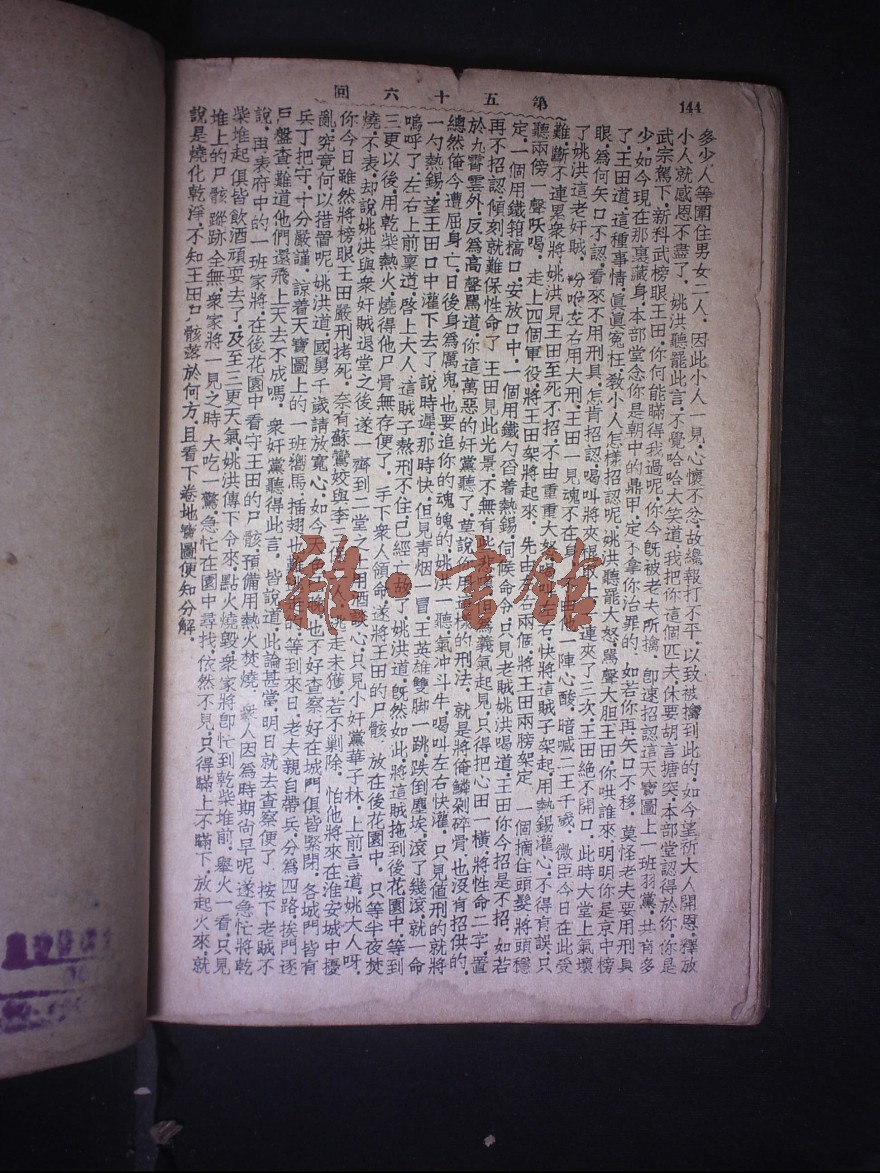 144
第五十六回
多少人等圍住男女二人．因此小人一見．心懷不忿．故纔報打不平．以致被擒到此的．如今望祈大人開恩．釋放
小人就感恩不盡了．姚洪聽罷此言．不覺哈哈大笑道．我把你這個匹夫．休要胡言搪突．本部堂認得於你．你是
武宗駕下．新科武榜眼王田．你何能瞞得我過呢．你今旣被老夫所擒．卽速招認這天寶圖上一班羽黨．共有多
少．如今現在那裏藏身．本部堂念你是朝中的鼎甲．定不拿你治罪的．如若你再矢口不移．莫怪老夫要用刑具
了．王田道．這種事情．眞眞寃枉．敎小人怎樣招認呢．姚洪聽罷大怒．罵聲大胆王田．你哄誰來．明明你是京中榜
眼．爲何矢口不認．看來不用刑具．怎肯招認．喝叫將夾棍取上．連夾了三次．王田絶不開口．此時大堂上氣壞
了姚洪這老奸賊．吩咐左右用大刑．王田一見魂不在身．不由他一陣心酸．暗喊二王千歲．微臣今日在此受
難．斷不連累衆將．姚洪見王田至死不招．不由重重大怒．喝叫左右．快將這賊子架起．用熱錫灌心．不得有誤．只
聽兩傍一聲吆喝．走上四個軍役．將王田架將起來．先由左右兩個．將王田兩膀架定．一個摘住頭髮．將頭穩
定．一個用鐵箱槁口．安放口中．一個用鐵勺舀着熱錫．伺候命令．只見老賊姚洪喝道．王田你今招是不招．如若
再不招認．傾刻就難保性命了．王田見此光景．不無有些悲慘．但爲義氣起見．只得把心田一橫．將性命二字．置
於九霄雲外．反爲高聲罵道．你這萬惡的奸黨聽了．莫說用這樣的刑法．就是將俺鱗剁碎骨．也沒有招供的．
總然俺今遭屈身亡．日後身爲厲鬼．也要追你的魂魄的．姚洪一聽．氣冲斗牛．喝叫左右快灌．只見値刑的就將
一勺熱錫．望王田口中灌下去了．說時遲．那時快．但見靑烟一冒．王英雄雙脚一跳．跌倒塵埃．滾了幾滾．就一命
嗚呼了．左右上前稟道．啓上大人．這賊子熬刑不住．已經亡故了．姚洪道．旣然如此．將這賊拖到後花園中．等到
三更以後．用乾柴熱火．燒得他尸骨無存便了．手下衆人領命．遂將王田的尸骸．放在後花園中．只等半夜焚
燒．不表．却說姚洪與衆奸賊退堂之後．遂一齊到二堂之上．用酒談心．只見小奸黨華子林．上前言道．姚大人呀．
你今日雖然將榜眼王田嚴刑拷死．奈有蘇鸞姣與李
亂．究竟何以措置呢．姚洪道．國舅千歲請放寬心．如今天色已晚．也不好查察．好在城門俱皆緊閉．各城門皆有
兵丁把守．十分嚴謹．諒着天寶圖上的一班響馬．插翅也難飛去．等到來日．老夫親自帶兵．分爲四路．挨門逐
戶盤查．難道他們還飛上天去不成嗎．衆奸黨聽得此言．皆說道此論甚當．明日就去查察便了．按下老賊不
說．再表府中的一班家將．在後花園中看守王田的尸骸．預備用熱火焚燒．衆人因爲時期尚早呢．遂急忙將乾
柴堆起．俱皆飮酒頑耍去了．及至三更天氣．姚洪傳下令來．點火燒毀．衆家將卽忙到乾柴堆前．舉火一看．只見
堆上的尸骸．蹤跡全無．衆家將一見之時．大吃一驚．急忙在園中尋找．依然不見．只得瞞上不瞞下．放起火來．就
說是燒化乾淨．不知王田尸骸落於何方．且看下卷地寶圖便知分解．
雜·書館